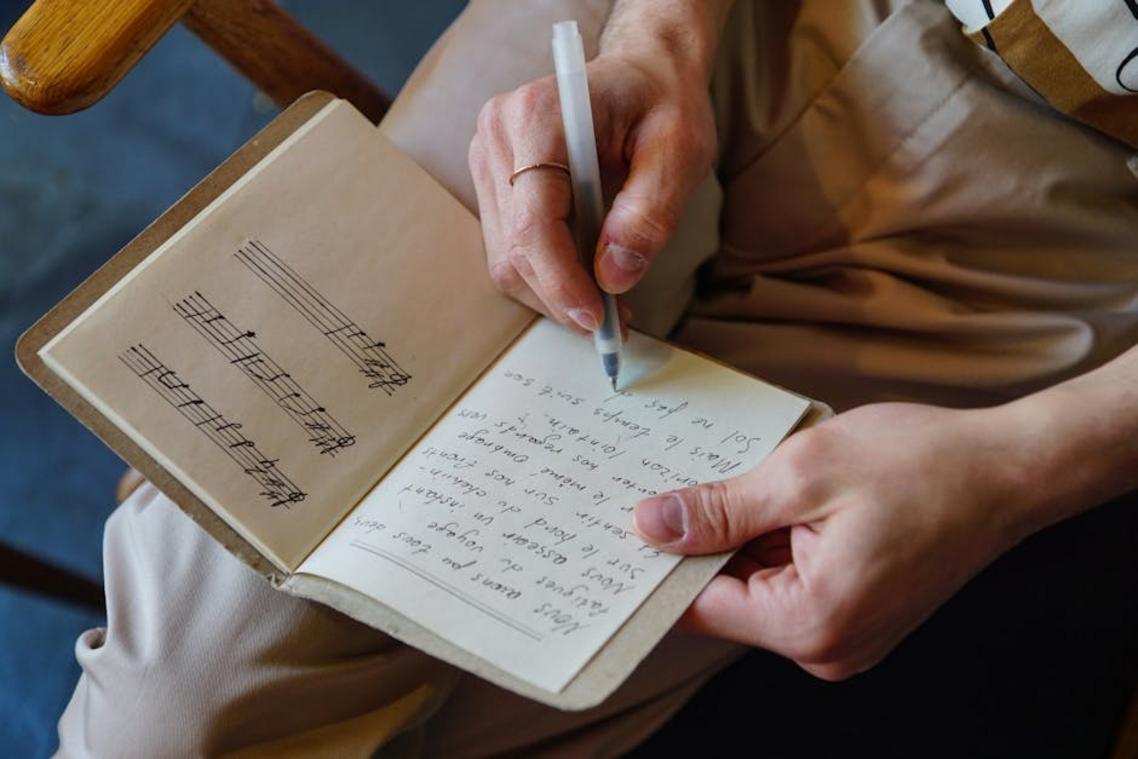 Nous avons pu tous deux
fatigués du voyage
Nous asseoir un instant
Sur le bord du chemin-
Et sentir sur nos fronts
le même Ombrage
nos regards vers
horizon lointain.
Mais le temps suit son